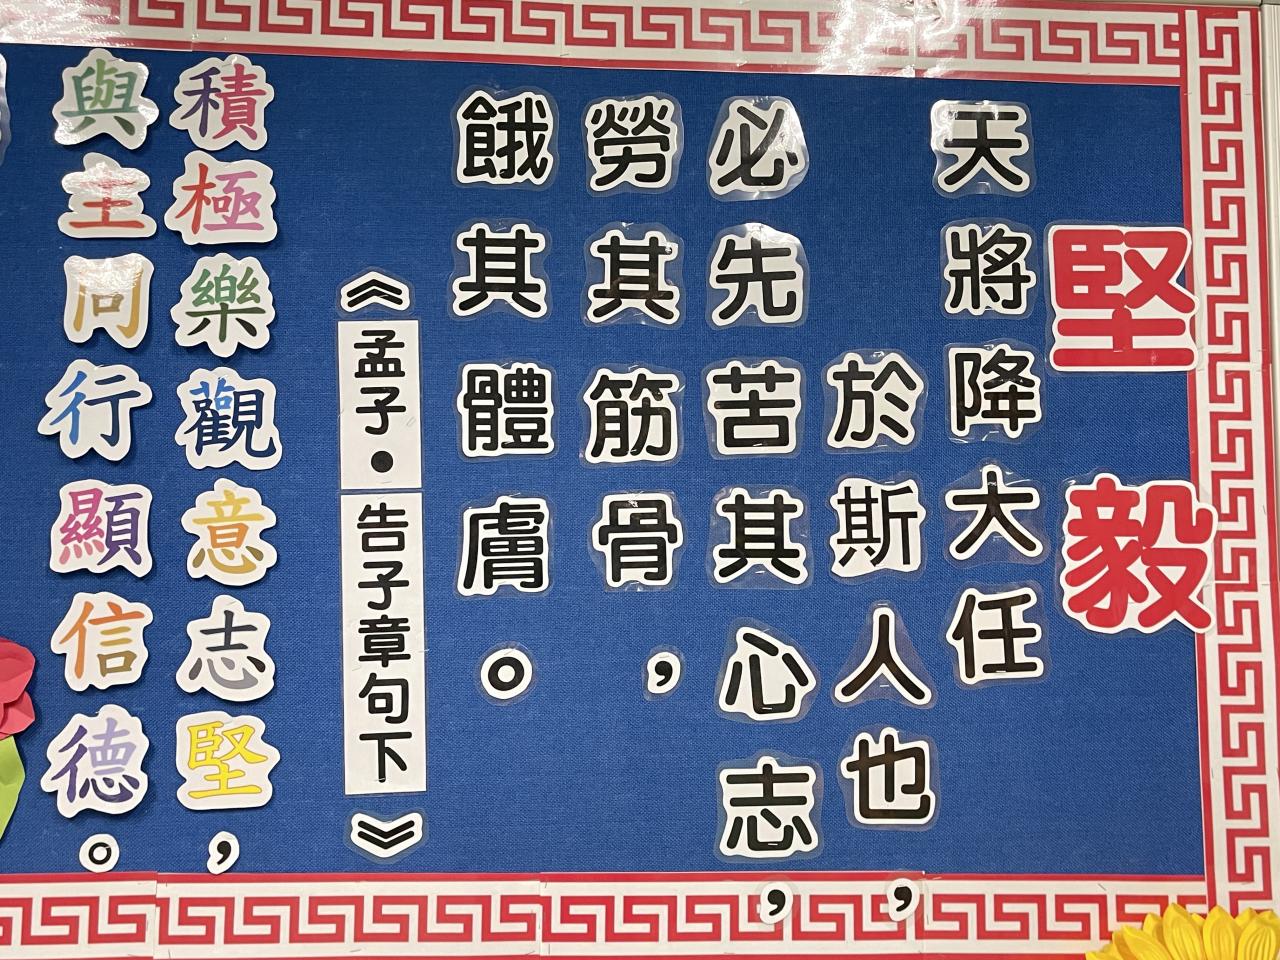 堅毅
天將降大任
於斯人也，
必先苦其心志，
勞其筋骨，
餓其體膚。
《孟子•告子章句下》
積極樂觀意志堅，
與主同行顯信德。